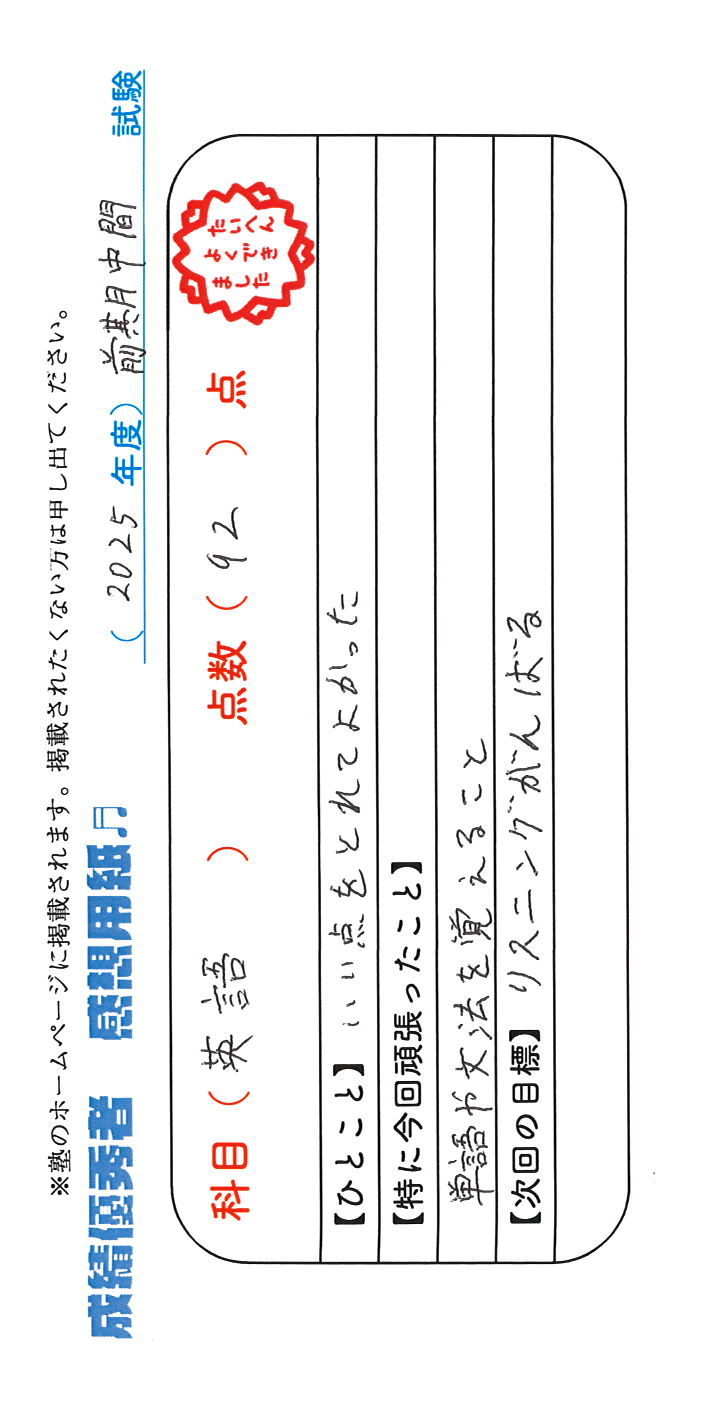 ※塾のホームページに掲載されます。掲載されたくない方は申し出てください。
成績優秀者 感想用紙♫ (2025年度) 前期中間 試験
科目(英語) 点数(92)点
たいへん
よくでき
ました
【ひとこと】いい点をとれてよかった
【特に今回頑張ったこと】
単語や文法を覚えること
【次回の目標】リスニングがんばる